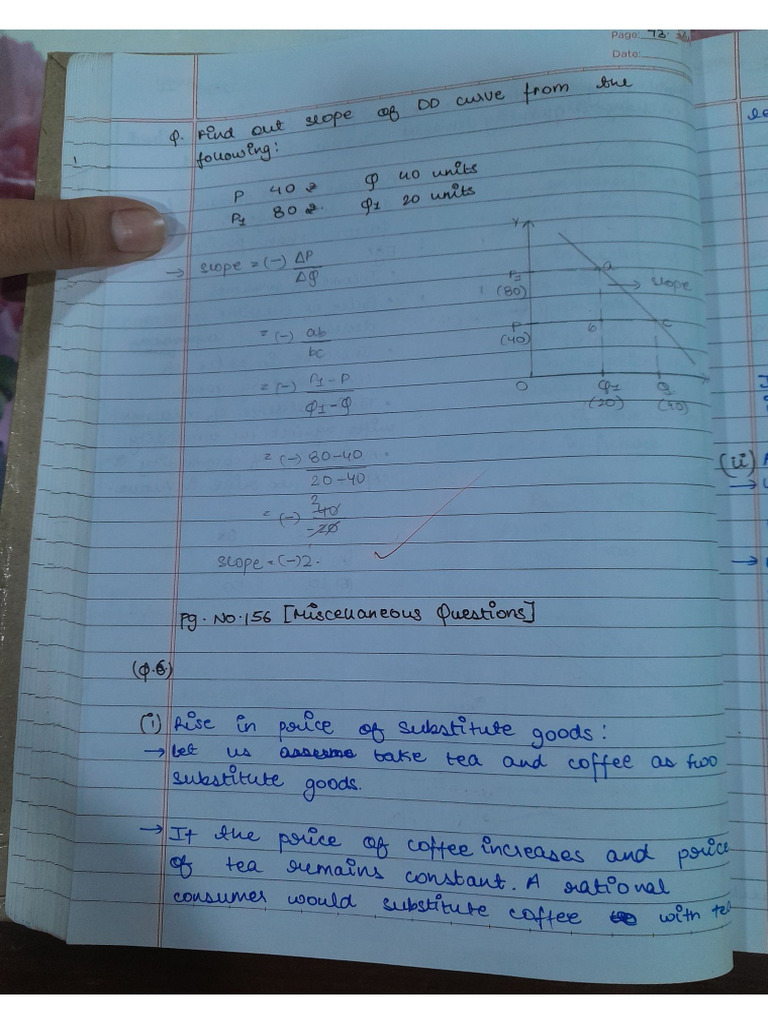 Page: 73
Date:
Q. Find out slope of DD curve from the
following:
P 40 Q 40 units
P1 80 Q1 20 units
→ slope = (-) ΔP
ΔQ
= (-) ab
bc
= (-) P1 - P
Q1 - Q
= (-) 80-40
20-40
= (-) 2 40
-20
1
slope = (-) 2.
Y
P1
(80)
a
→ slope
P
(40)
b
c
O
Q1
(20)
Q
(40)
Pg. No. 156 [Miscellaneous Questions]
(Q.6)
(i) Rise in price of substitute goods:
→ Let us assume take tea and coffee as two
substitute goods.
→ If the price of coffee increases and price
of tea remains constant. A rational
consumer would substitute coffee with tea
(ii)